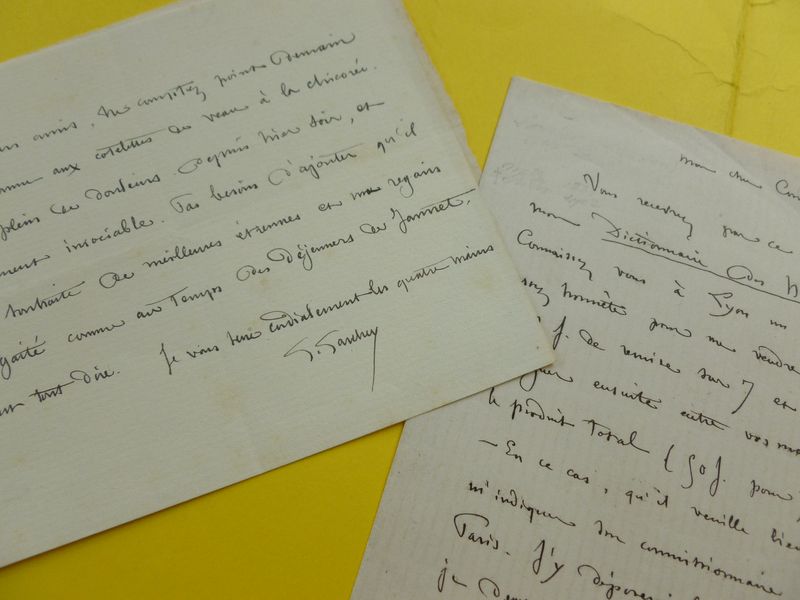 amis, ne comptez point demain
aux cotelettes de veau à la chicorée.
plein de douleurs depuis hier soir, et
insociable. Pas besoin d'ajouter qu'il
souhaite de meilleures étrennes et un regain
gaité comme au temps des déjeuners de Jannet,
tout dire. Je vous serre cordialement les quatre mains
mon cher Con
Vous recevrez par ce
mon Dictionnaire des
Connaissez vous à Lyon un
honnête pour me vendre
f. de remise sur 7 et
ensuite entre vos
le produit total (50 f. pour
— En ce cas, qu'il veuille bien
m'indiquer son commissionnaire
Paris. J'y déposer
je